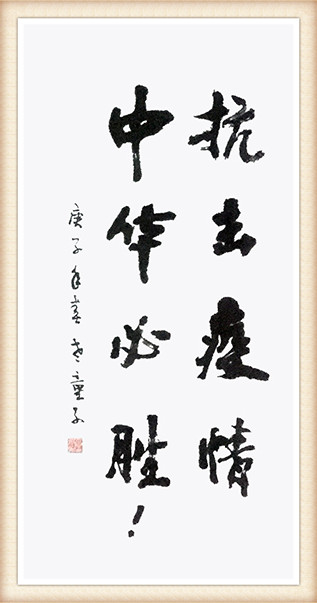 抗击疫情
中华必胜！
庚子年春老童子